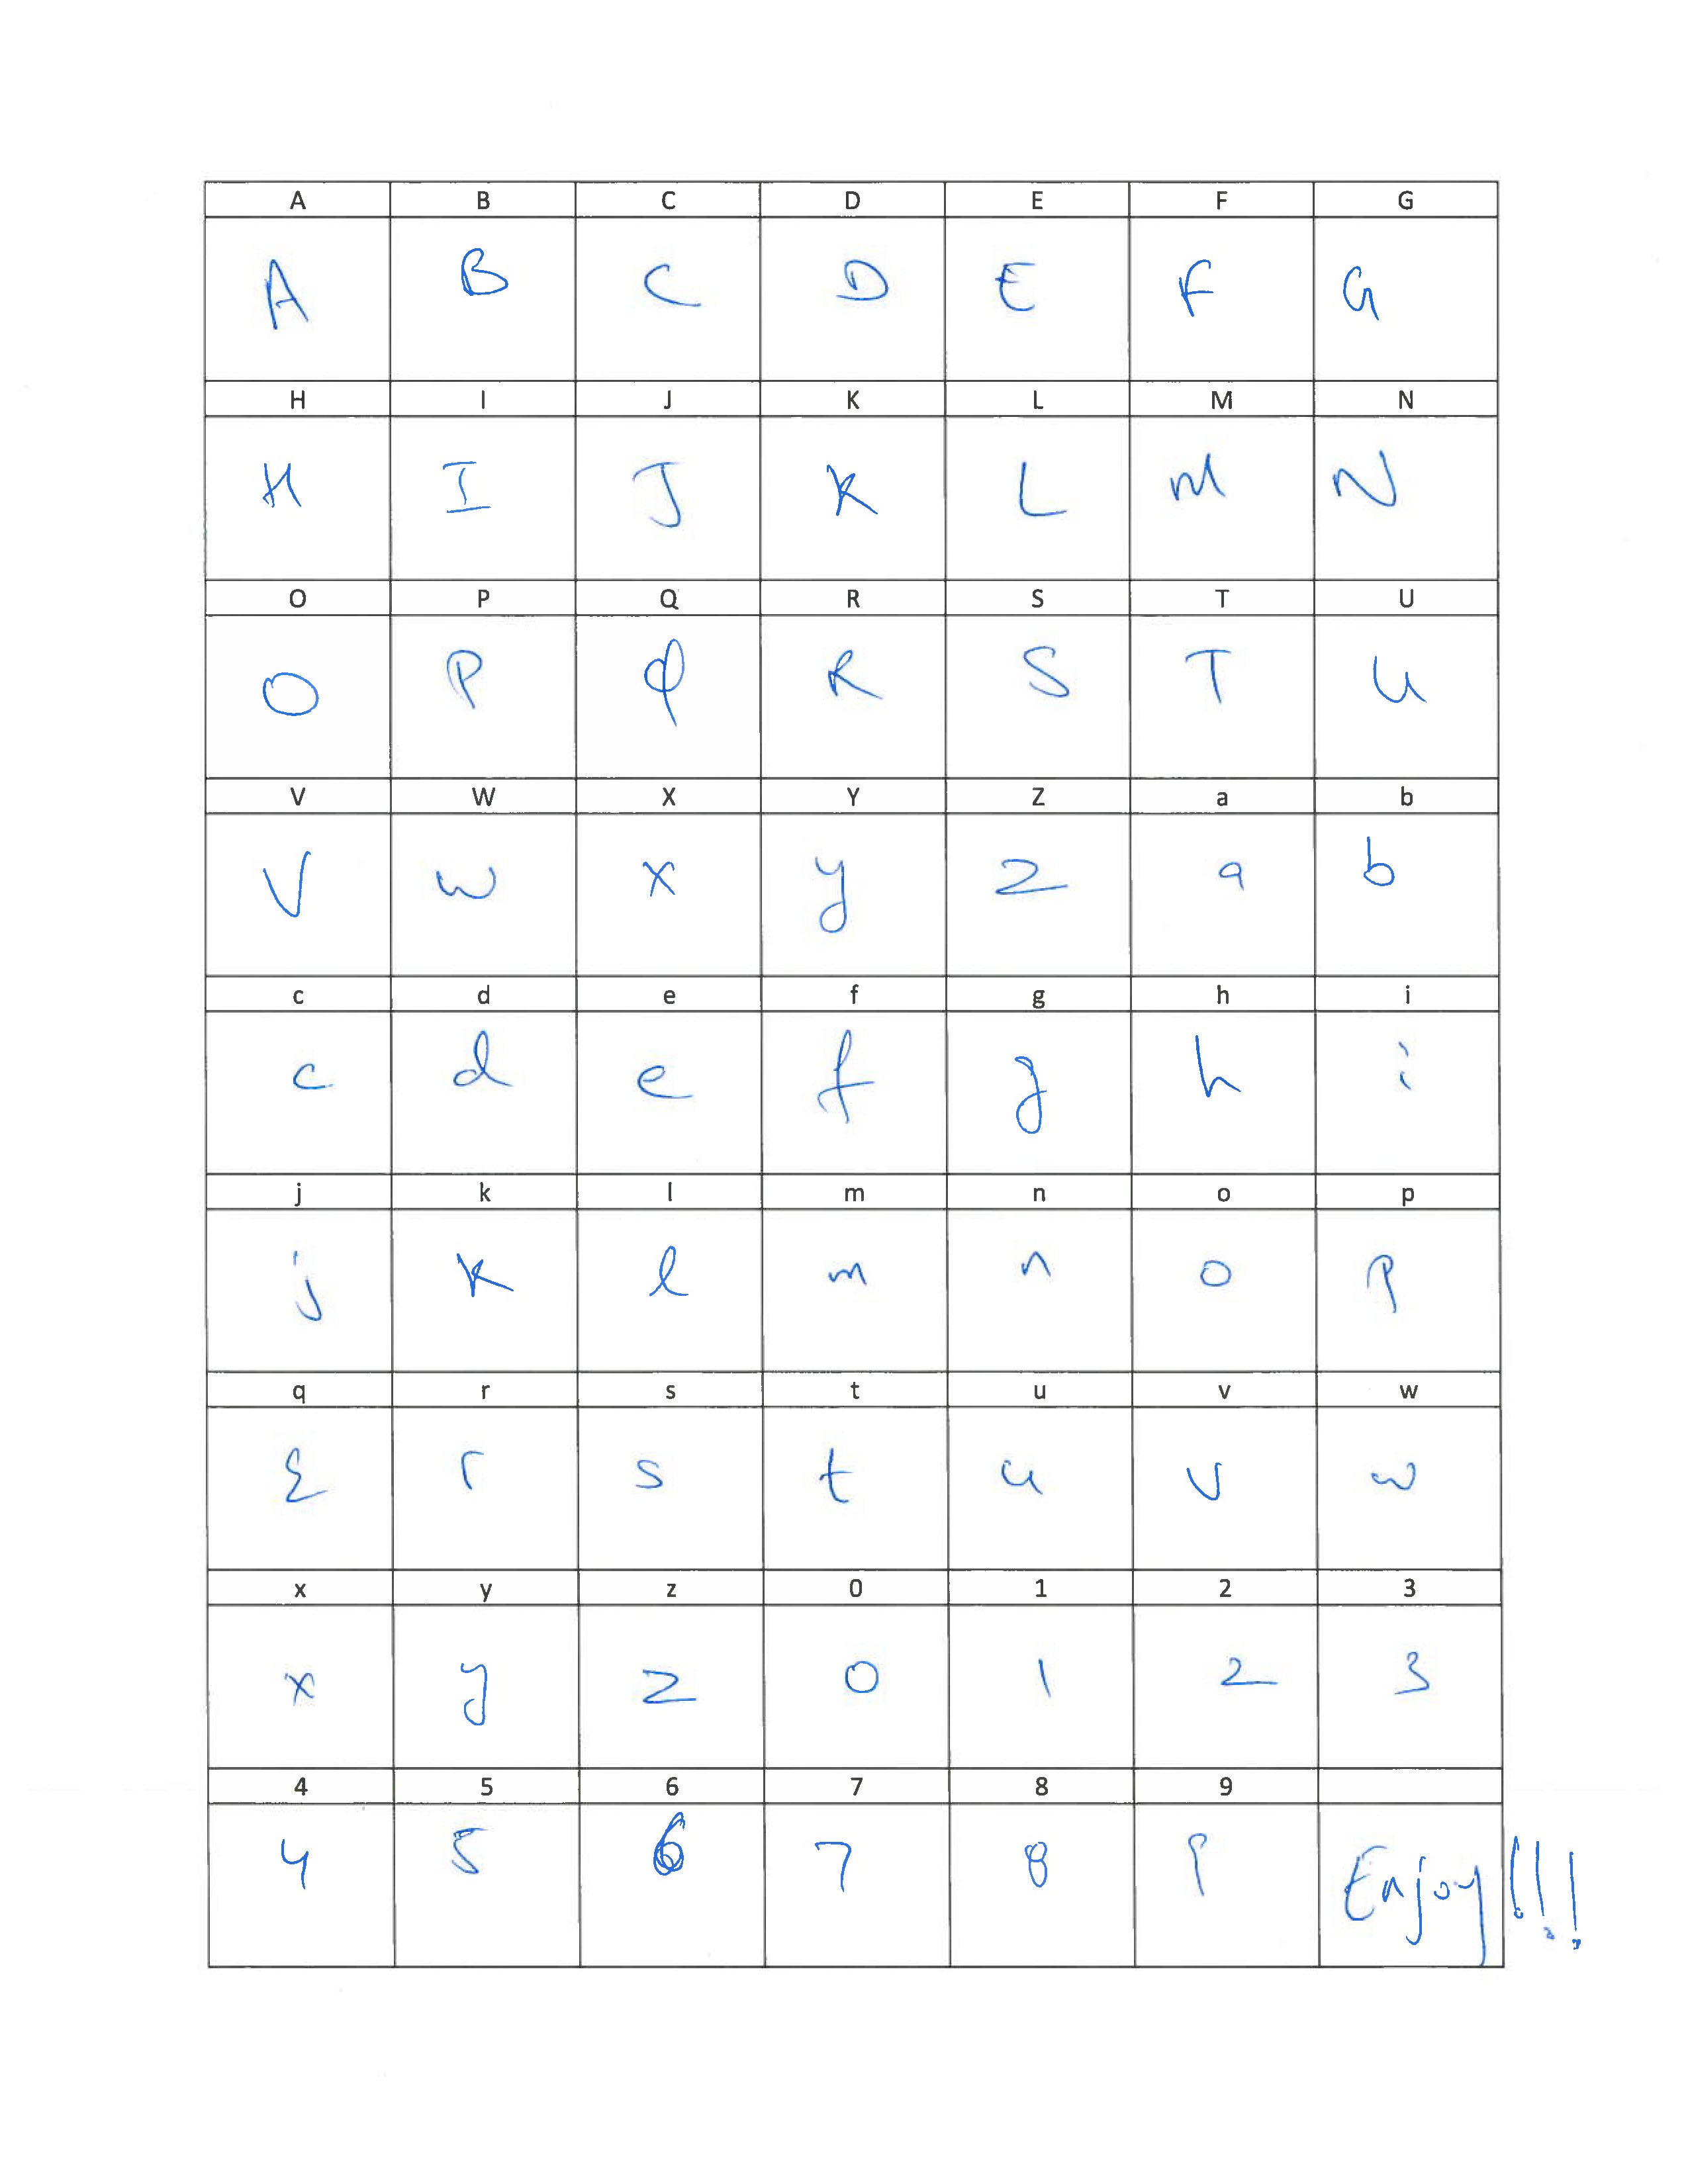 A B C D E F G
A B C D E F G
H I J K L M N
H I J K L M N
O P Q R S T U
O P Q R S T U
V W X Y Z a b
V W X y Z a b
c d e f g h i
c d e f g h i
j k l m n o p
j k l m n o p
q r s t u v w
q r s t u v w
x y z 0 1 2 3
x y z 0 1 2 3
4 5 6 7 8 9
4 5 6 7 8 9 Enjoy!!!